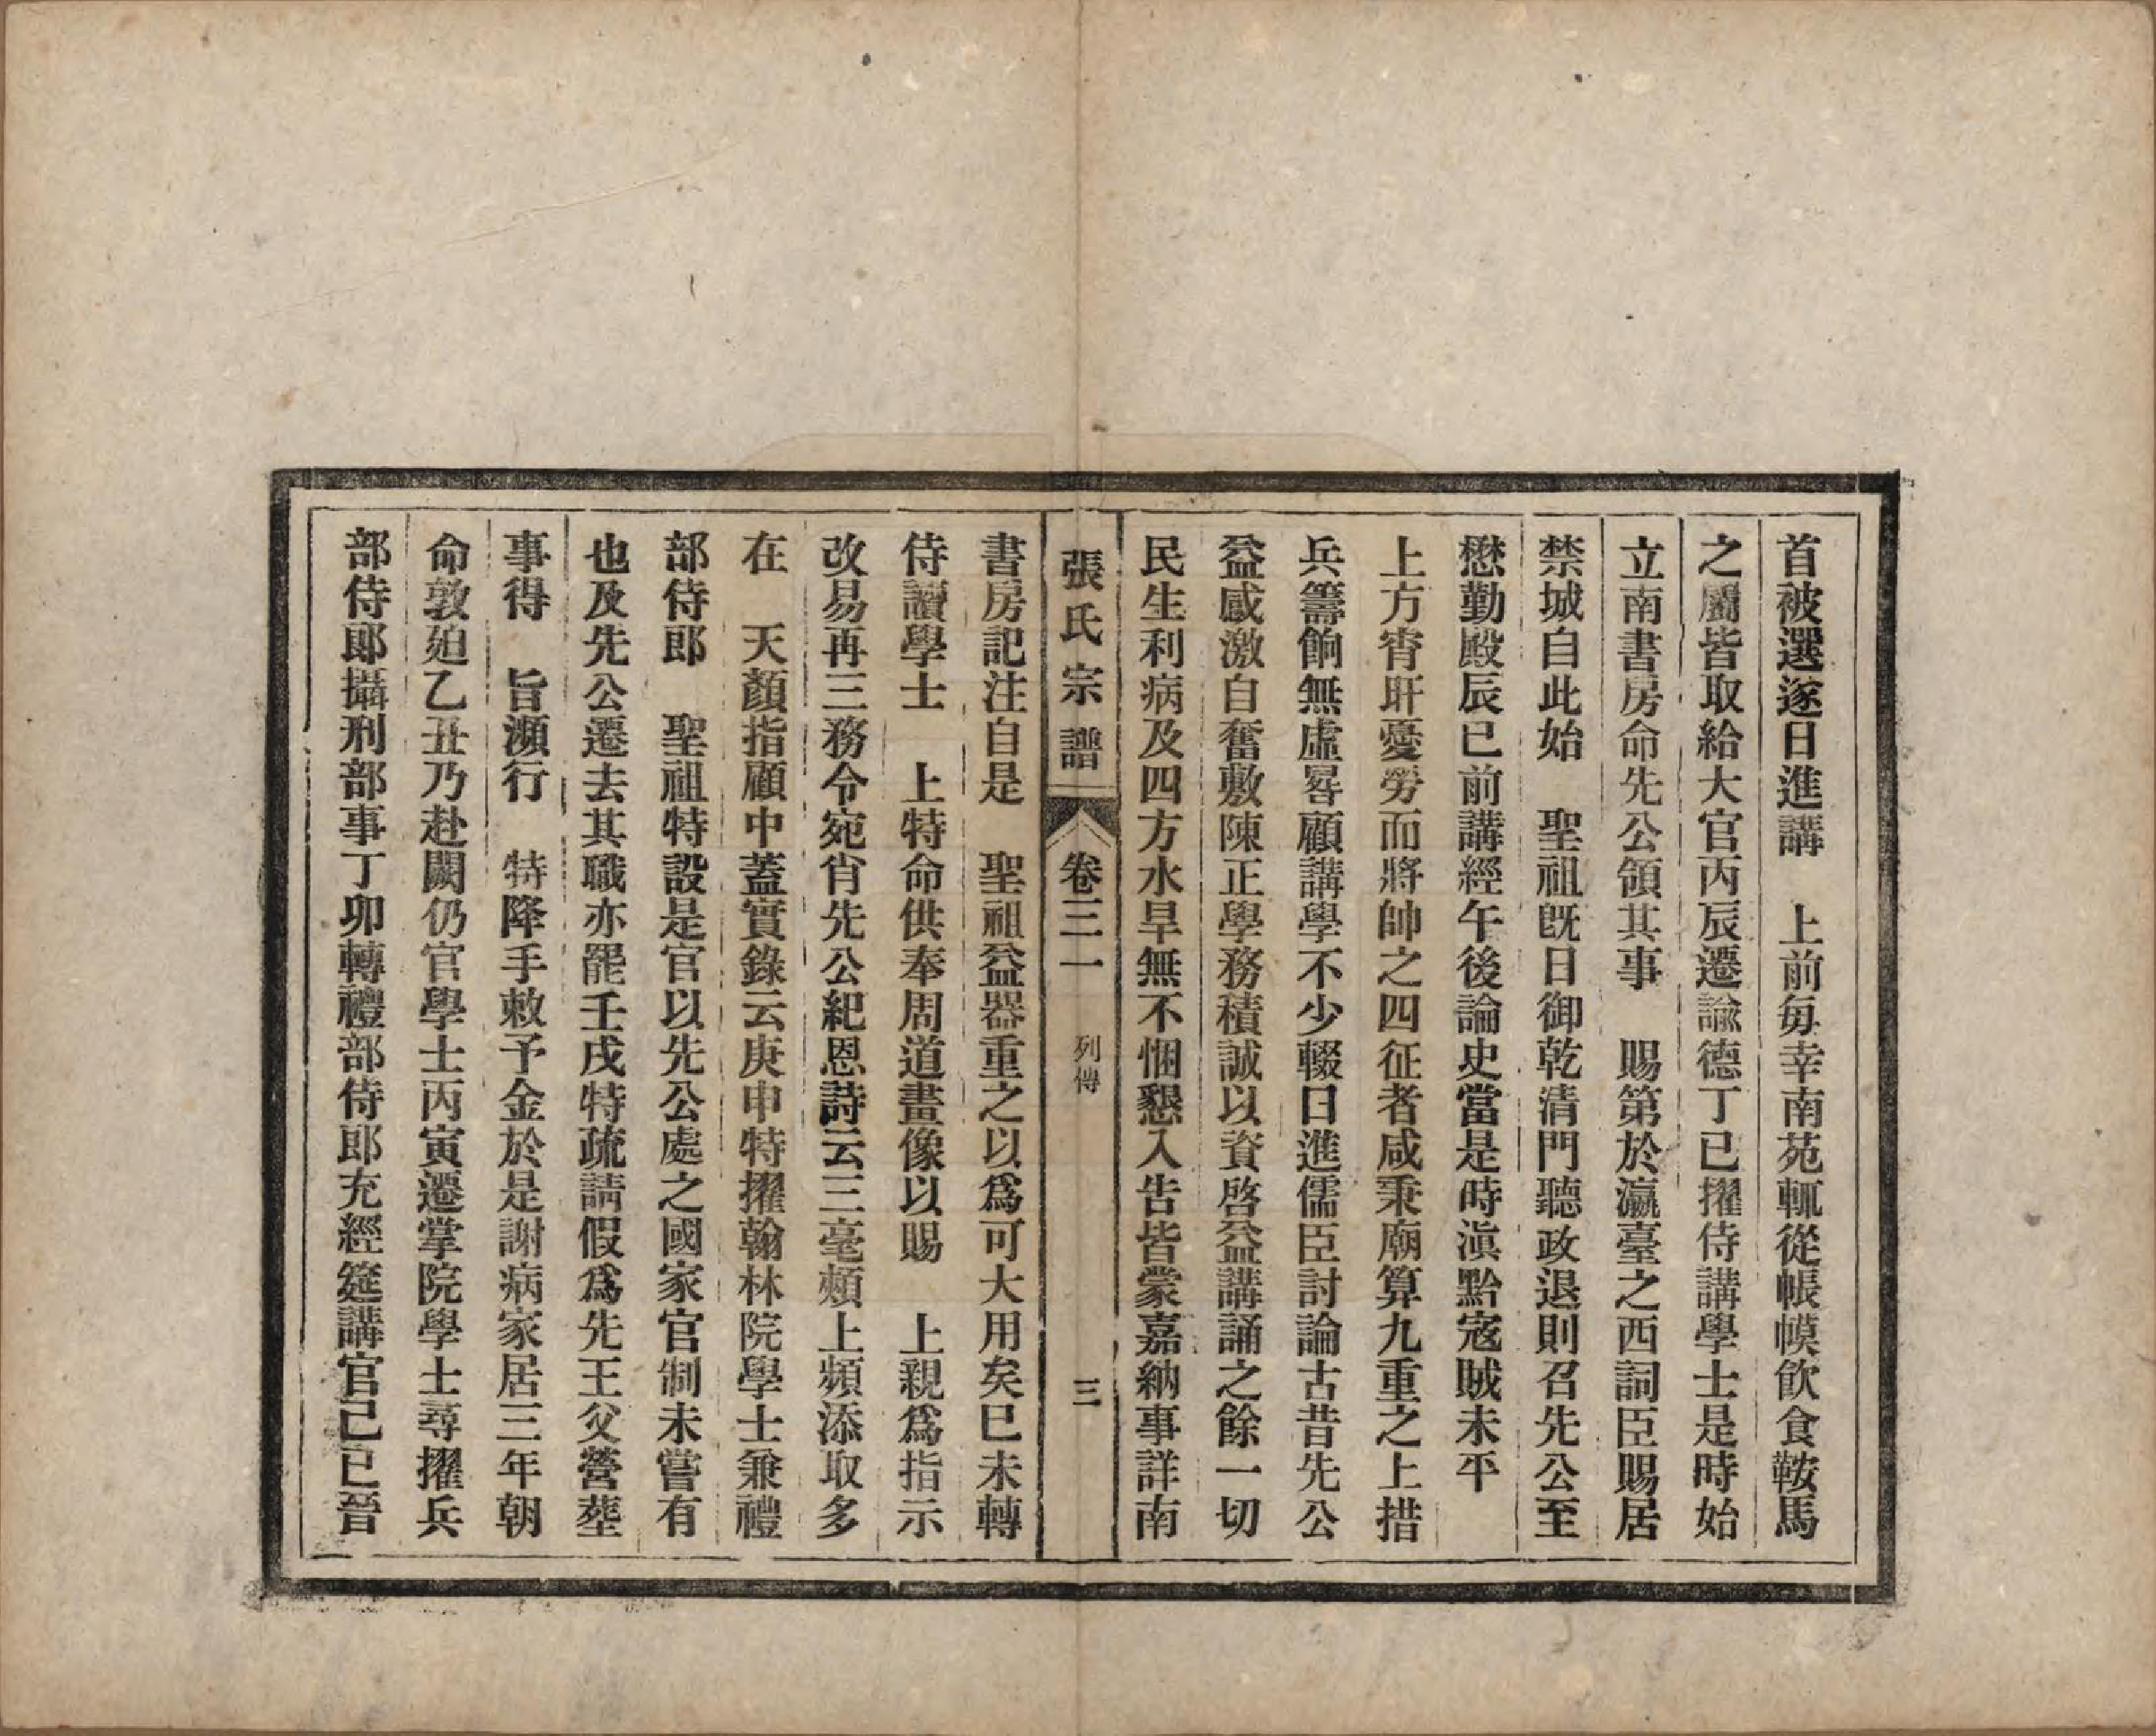 首被選逐日進講　上前每幸南苑輒從帳幙飲食鞍馬
之屬皆取給大官丙辰遷諭德丁巳擢侍講學士是時始
立南書房命先公領其事　賜第於瀛臺之西詞臣賜居
禁城自此始　聖祖旣日御乾清門聽政退則召先公至
懋勤殿辰巳前講經午後論史當是時滇黔寇賊未平
上方宵旰憂勞而將帥之四征者咸秉廟算九重之上措
兵籌餉無虛晷顧講學不少輟日進儒臣討論古昔先公
益感激自奮敷陳正學務積誠以資啓益講誦之餘一切
民生利病及四方水旱無不悃懇入告皆蒙嘉納事詳南
張氏宗譜　卷三一　列傳　三
書房記注自是　聖祖益器重之以爲可大用矣巳未轉
侍讀學士　上特命供奉周道畫像以賜　上親爲指示
改易再三務令宛肖先公紀恩詩云三毫頰上頻添取多
在　天顏指顧中蓋實錄云庚申特擢翰林院學士兼禮
部侍郎　聖祖特設是官以先公處之國家官制未嘗有
也及先公遷去其職亦罷壬戌特疏請假爲先王父營塟
事得　旨瀕行　特降手敕予金於是謝病家居三年朝
命敦廹乙丑乃赴闕仍官學士丙寅遷掌院學士尋擢兵
部侍郎攝刑部事丁卯轉禮部侍郎充經筵講官己巳晉